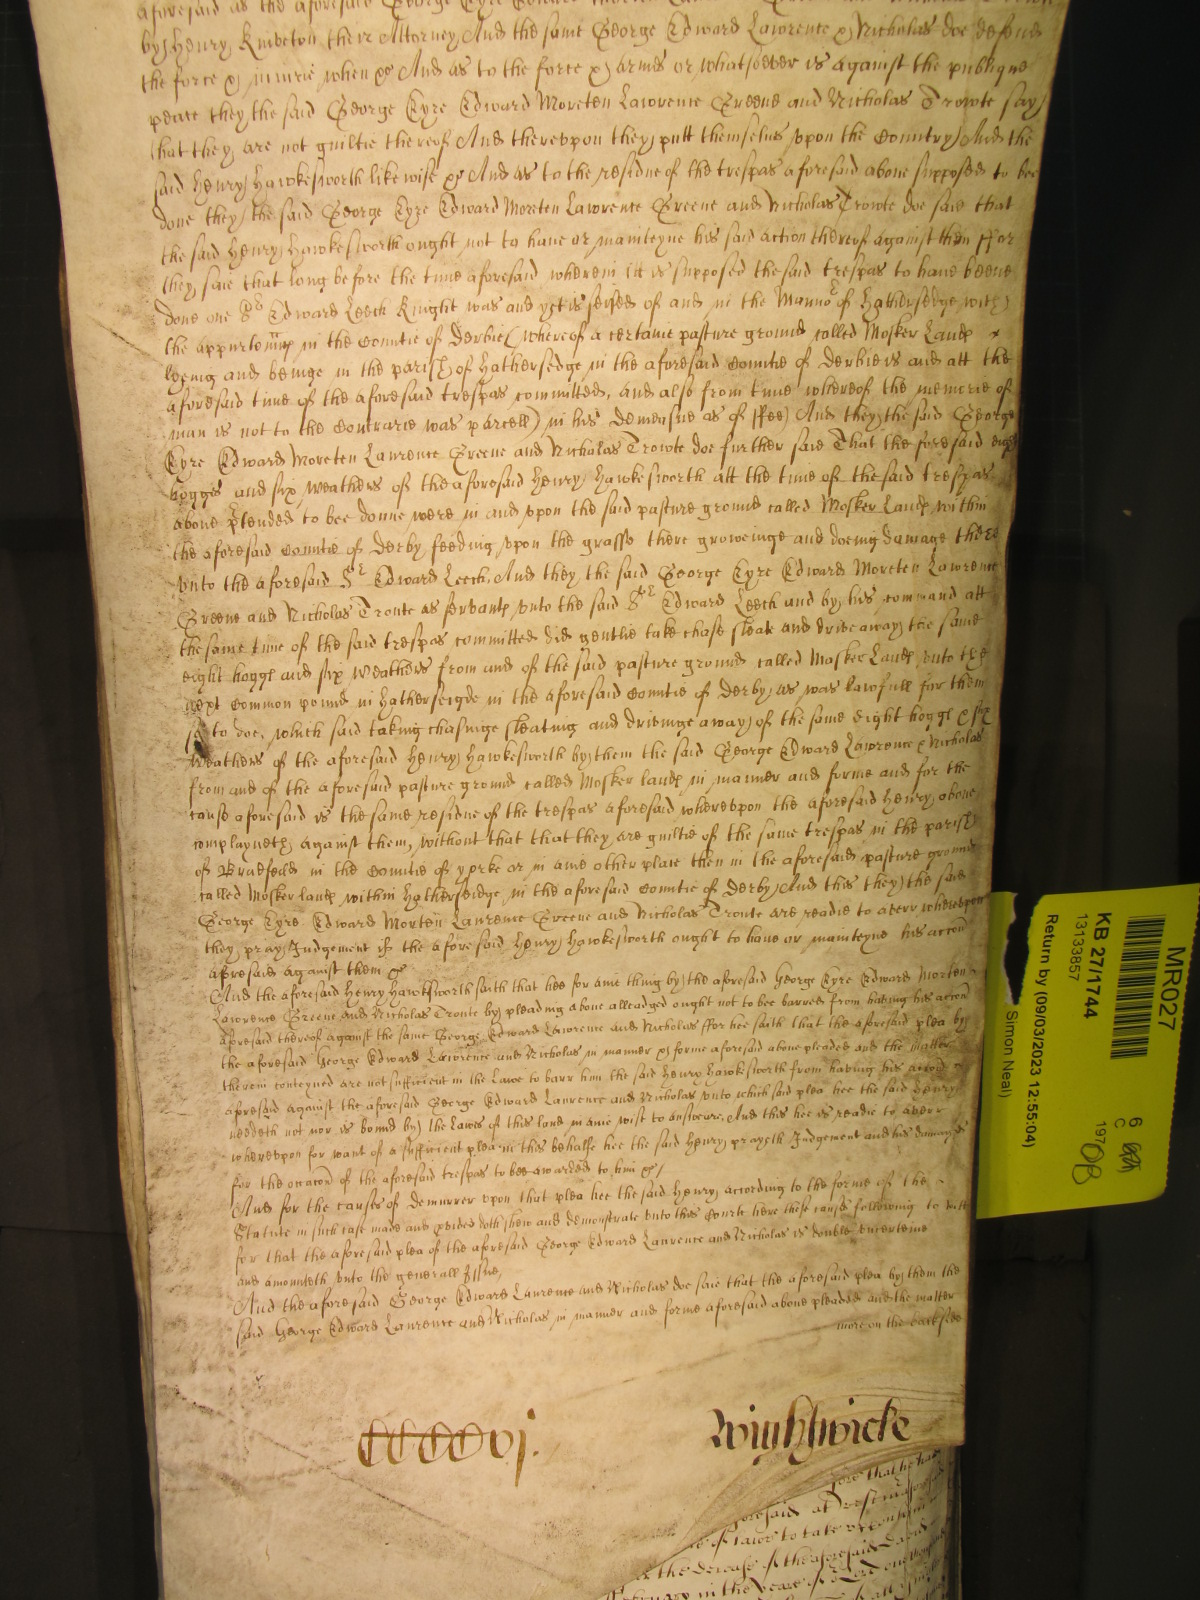 aforesaid as the aforesaid George Eyre Edward
by Henry Kniveton their Attorney And the same George Edward Lawrence & Nicholas doe defend
the force & iniurie when &c And as to the force & armes or whatsoever is against the publique
peace they the said George Eyre Edward Moreten Lawrence Greene and Nicholas Trowte say
that they are not guiltie thereof And therevpon they putt themselus vpon the Countrey And the
said Henry Hawkesworth likewise &c And as to the residue of the trespas aforesaid aboue supposed to bee
done they the said George Eyre Edward Moreten Lawrence Greene and Nicholas Trowte doe saie that
the said Henry Hawkesworth ought not to haue or mainteyne his said action thereof against them ffor
they saie that long before the time aforesaid wherein itt is supposed the said trespas to haue beene
done one Sr Edward Leech Knight was and yet is seised of and in the Mannor of Hathersedge with
the appurtennces in the Countie of Derbie (whereof a certaine pasture ground called Mosker Landes
lyeing and beinge in the parish of Hathersedge in the aforesaid Countie of Derbie is and att the
aforesaid time of the aforesaid trespas committed, and also from time whereof the memorie of
man is not to the Contrarie was parcell) in his demeasne as of ffee And they the said George
Eyre Edward Moreten Laurence Greene and Nicholas Trowte doe further saie That the foresaid eight
hogges and six weathers of the aforesaid Henry Hawkesworth att the time of the said trespas
aboue pretended to bee donne were in and vpon the said pasture ground called Mosker Landes within
the aforesaid Countie of Derby feeding vpon the grasse there groweinge and doeing damage there
vnto the aforesaid Sr Edward Leech, And they the said George Eyre Edward Moreten Lawrence
Greene and Nicholas Troute as servants vnto the said Sr Edward Leech and by his command att
the same time of the said trespas committed did gentlie take chase sleate and drive away the same
eight hogges and six weathers from and of the said pasture ground called Mosker Landes vnto the
next Common pound in Hatherseigde in the aforesaid Countie of Derby, as was lawfull for them
so to doe, which said taking chasinge sleating and driueinge away of the same eight hogges & six
weathers of the aforesaid Henry Hawkesworth by them the said George Edward Lawrence & Nicholas
from and of the aforesaid pasture ground called Mosker landes in manner and forme and for the
cause aforesaid is the same residue of the trespas aforesaid wherevpon the aforesaid Henry aboue
complayneth against them, without that that they are guiltie of the same trespas in the parish
of Bradfeild in the Countie of yorke or in anie other place then in the aforesaid pasture ground
called Mosker landes within Hatherseidge in the aforesaid Countie of Derby And this they the said
George Eyre Edward Morten Laurence Greene and Nicholas Troute are readie to averr wherevpon
they pray Iudgement if the aforesaid Henry Hawkesworth ought to haue or mainteyne his accon
aforesaid against them &c
And the aforesaid Henry Hawksworth saith that hee for anie thing by the aforesaid George Eyre Edward Morten
Lawrence Greene and Nicholas Troute by pleading aboue alleadged ought not to bee barred from having his accon
aforesaid thereof against the same George Edward Lawrence and Nicholas ffor hee saith that the aforesaid plea by
the aforesaid George Edward Lawrence and Nicholas in manner & forme aforesaid aboue pleaded and the matter
therein conteyned are not sufficient in the Lawe to barr him the said Henry Hawkesworth from having his accon
aforesaid against the aforesaid George Edward Laurence and Nicholas vnto which said plea hee the said Henry
needeth not nor is bound by the lawes of this land in anie wise to answeare, And this hee is readie to averr
wherevpon for want of a sufficient plea in this behalfe hee the said Henry prayeth Iudgement and his damages
for the occacon of the aforesaid trespas to bee awarded to him &c
And for the causes of Demurrer vpon that plea hee the said Henry according to the forme of the
Statute in such case made and prouided doth shew and demonstrate vnto this Courte here these causes following to witt
for that the aforesaid plea of the aforesaid George Edward Laurence and Nicholas is double incerteine
and amounteth vnto the generall Issue,
And the aforesaid George Edward Laurence and Nicholas doe saie that the aforesaid plea by them the
said George Edward Laurence and Nicholas in manner and forme aforesaid aboue pleaded and the matter
more on the backside
CCCCvj.
Wightwicke
fore that he ha
foresaid at
of lawe to take
the decease of the aforesaid
in the yeare of Lord one thousand
MR027
KB 27/1744
13133857
Return by (09/03/2023 12:55:04)
Simon Neal)
6
C
197